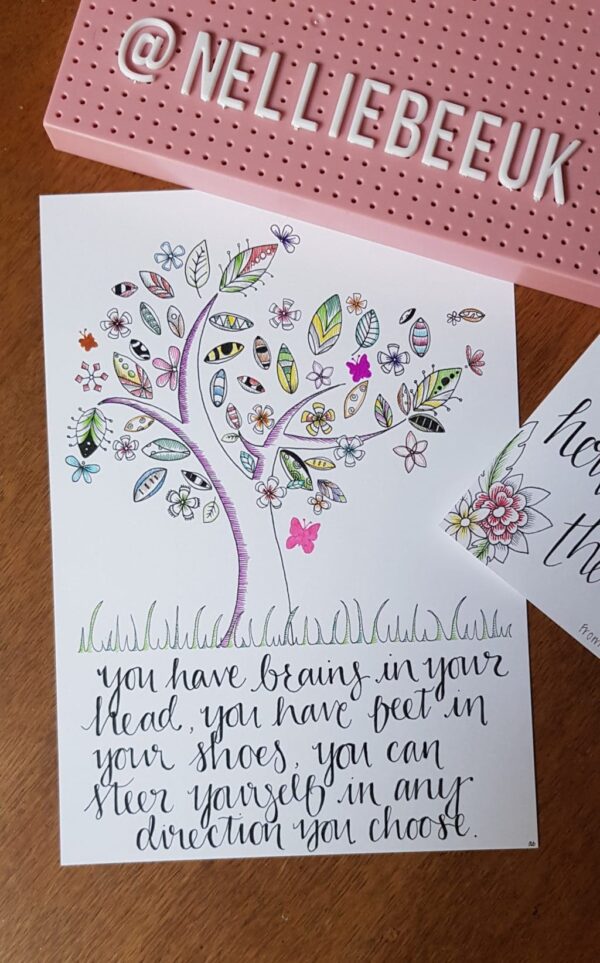 @NELLIEBEEUK
you have brains in your
head, you have feet in
your shoes, you can
steer yourself in any
direction you choose.
the
From